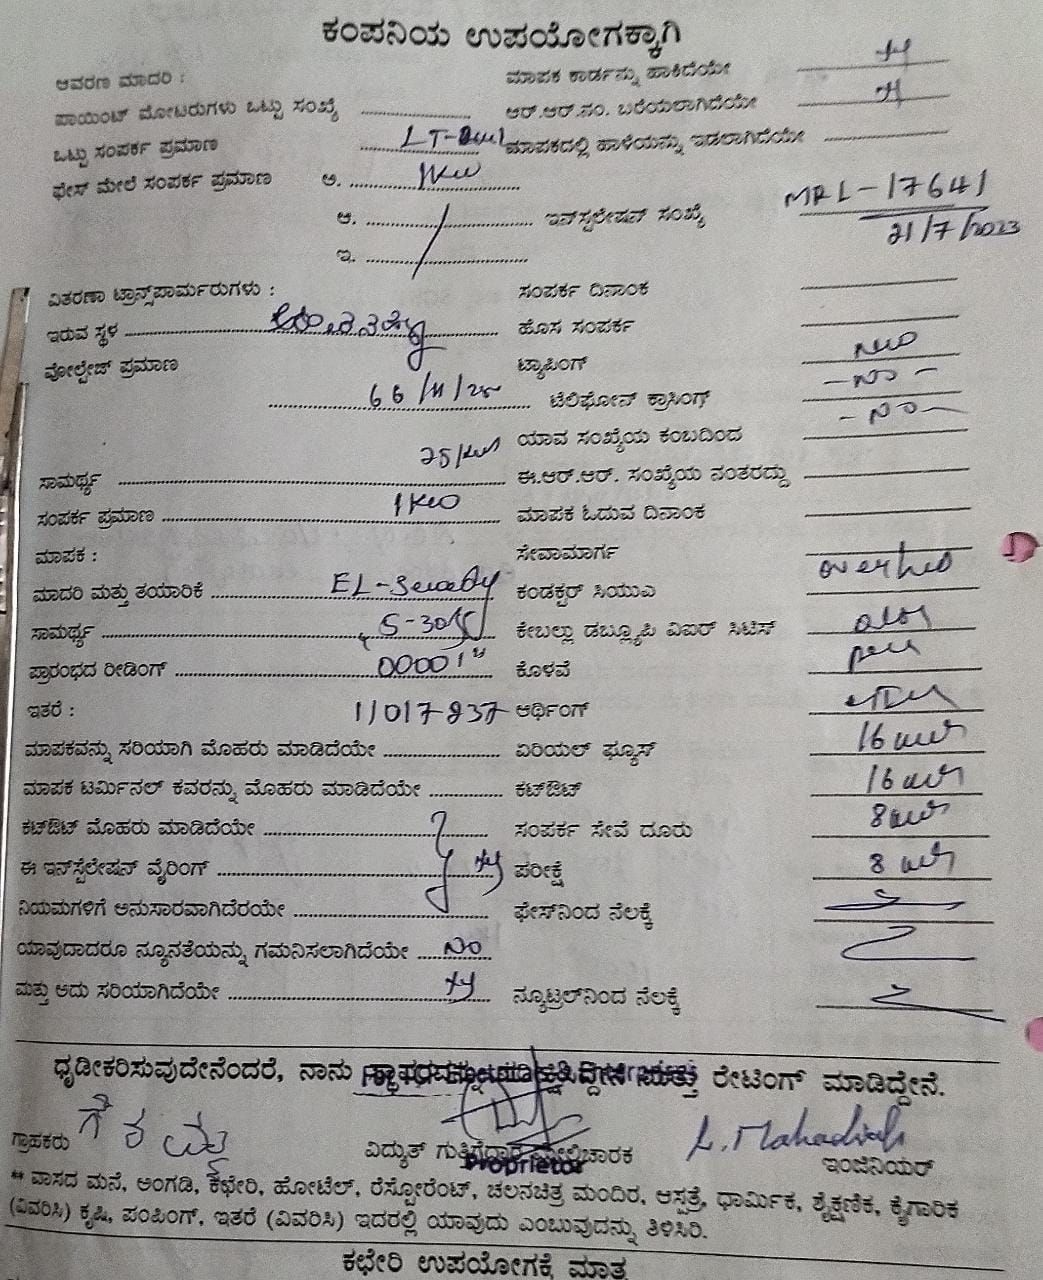 ಕಂಪನಿಯ ಉಪಯೋಗಕ್ಕಾಗಿ
ಆವರಣ ಮಾದರಿ :
ಮಾಪಕ ಕಾರ್ಡನ್ನು ಹಾಕಿದೆಯೇ
ಪಾಯಿಂಟ್ ಮೋಟರುಗಳು ಒಟ್ಟು ಸಂಖ್ಯೆ
ಆರ್.ಆರ್.ನಂ. ಬರೆಯಲಾಗಿದೆಯೇ
ಒಟ್ಟು ಸಂಪರ್ಕ ಪ್ರಮಾಣ LT-
ಮಾಪಕದಲ್ಲಿ ಹಾಳೆಯನ್ನು ಇಡಲಾಗಿದೆಯೇ
ಫೇಸ್ ಮೇಲೆ ಸಂಪರ್ಕ ಪ್ರಮಾಣ ಅ. 1KW
ಆ. ಇನ್‌ಸ್ಟಲೇಷನ್ ಸಂಖ್ಯೆ MRL-17641
21/7/2023
ಇ.
ವಿತರಣಾ ಟ್ರಾನ್ಸ್‌ಪಾರ್ಮರುಗಳು :
ಸಂಪರ್ಕ ದಿನಾಂಕ
ಇರುವ ಸ್ಥಳ
ಹೊಸ ಸಂಪರ್ಕ
ವೋಲ್ಟೇಜ್ ಪ್ರಮಾಣ
ಟ್ಯಾಪಿಂಗ್
66/11/
ಟೆಲಿಫೋನ್ ಕ್ರಾಸಿಂಗ್ -No-
ಯಾವ ಸಂಖ್ಯೆಯ ಕಂಬದಿಂದ -No-
ಸಾಮರ್ಥ್ಯ 25
ಈ.ಆರ್.ಆರ್. ಸಂಖ್ಯೆಯ ನಂತರದ್ದು
ಸಂಪರ್ಕ ಪ್ರಮಾಣ 1KW
ಮಾಪಕ ಓದುವ ದಿನಾಂಕ
ಮಾಪಕ :
ಸೇವಾಮಾರ್ಗ
ಮಾದರಿ ಮತ್ತು ತಯಾರಿಕೆ
ಕಂಡಕ್ಟರ್ ಸಿಯುಎ
ಸಾಮರ್ಥ್ಯ 5-30
ಕೇಬಲ್ಲು ಡಬ್ಲ್ಯೂಪಿ ವಿಐರ್ ಸಿಟಿಸ್
ಪ್ರಾರಂಭದ ರೀಡಿಂಗ್ 00001
ಕೊಳವೆ
ಇತರೆ : 11017837
ಆರ್ಥಿಂಗ್
ಮಾಪಕವನ್ನು ಸರಿಯಾಗಿ ಮೊಹರು ಮಾಡಿದೆಯೇ
ಏರಿಯಲ್ ಫ್ಯೂಸ್ 16
ಮಾಪಕ ಟರ್ಮಿನಲ್ ಕವರನ್ನು ಮೊಹರು ಮಾಡಿದೆಯೇ
ಕಟ್‌ಔಟ್ 16
ಕಟ್‌ಔಟ್ ಮೊಹರು ಮಾಡಿದೆಯೇ
ಸಂಪರ್ಕ ಸೇವೆ ದೂರು 8
ಈ ಇನ್‌ಸ್ಟೆಲೇಷನ್ ವೈರಿಂಗ್
ಪರೀಕ್ಷೆ 8
ನಿಯಮಗಳಿಗೆ ಅನುಸಾರವಾಗಿದೆರಯೇ
ಫೇಸ್‌ನಿಂದ ನೆಲಕ್ಕೆ
ಯಾವುದಾದರೂ ನ್ಯೂನತೆಯನ್ನು ಗಮನಿಸಲಾಗಿದೆಯೇ No
ಮತ್ತು ಅದು ಸರಿಯಾಗಿದೆಯೇ
ನ್ಯೂಟ್ರಲ್‌ನಿಂದ ನೆಲಕ್ಕೆ
ಧೃಡೀಕರಿಸುವುದೇನೆಂದರೆ, ನಾನು ಮತ್ತು ರೇಟಿಂಗ್ ಮಾಡಿದ್ದೇನೆ.
ಗೌರಮ್ಮ
L. Mahadiah
ಗ್ರಾಹಕರು
ವಿದ್ಯುತ್ ಗುತ್ತಿಗೆದಾರ ಮೇಲ್ವಿಚಾರಕ
ಇಂಜಿನಿಯರ್
Proprietor
** ವಾಸದ ಮನೆ, ಅಂಗಡಿ, ಕಛೇರಿ, ಹೋಟೆಲ್, ರೆಸ್ಟೋರೆಂಟ್, ಚಲನಚಿತ್ರ ಮಂದಿರ, ಆಸ್ಪತ್ರೆ, ಧಾರ್ಮಿಕ, ಶೈಕ್ಷಣಿಕ, ಕೈಗಾರಿಕ
(ವಿವರಿಸಿ) ಕೃಷಿ, ಪಂಪಿಂಗ್, ಇತರೆ (ವಿವರಿಸಿ) ಇದರಲ್ಲಿ ಯಾವುದು ಎಂಬುವುದನ್ನು ತಿಳಿಸಿರಿ.
ಕಛೇರಿ ಉಪಯೋಗಕ್ಕೆ ಮಾತ್ರ